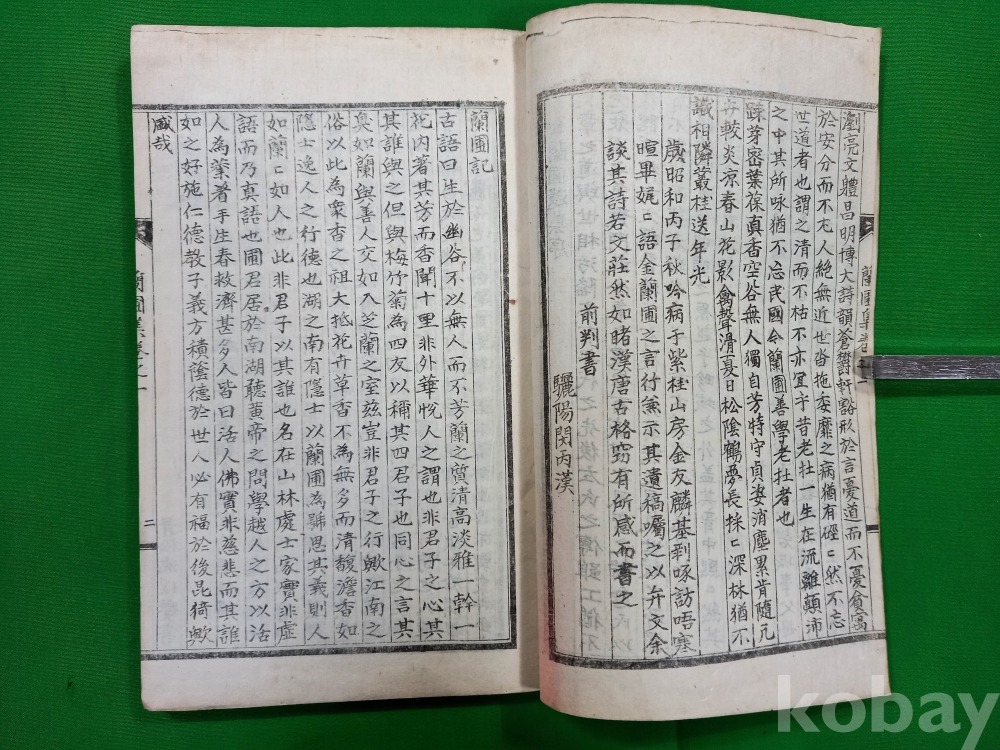 瀏亮文軆昌明博大詩韻蒼欝軒豁形於言憂道而不憂貧寓
於安分而不尤人絕無近世沓拖委靡之病猶有硜〻然不忘
世道者也謂之清而不枯不亦宜乎昔老杜一生在流離顛沛
之中其所咏猶不忘民國今蘭圃善學老杜者也
踈芽密葉葆真香空谷無人獨自芳特守貞姿消塵累肯隨凡
卉較炎凉春山花影禽聲滑夏日松陰鶴夢長採〻深林猶不
識相隣叢桂送年光
歲昭和丙子秋吟病于紫桂山房金友麟基剥啄訪唔塞
暄畢娓〻語金蘭圃之言行兼示其遺稿囑之以弁文余
談其詩若文莊然如睹漢唐古格窃有所感而書之
前判書
驪陽閔丙漢
蘭圃集卷之一
蘭圃記
古語曰生於幽谷不以無人而不芳蘭之質清高淡雅一幹一
花内著其芳而香聞十里非外華悅人之謂也非君子之心其
其誰與之但與梅竹菊為四友以稱其四君子也同心之言其
臭如蘭與善人交如入芝蘭之室玆豈非君子之行歟江南之
俗以此為衆香之祖大抵花卉草香不為無多而清馥澹香如
隱士逸人之行德也湖之南有隱士以蘭圃為號思其義則人
如蘭〻如人也此非君子以其誰也名在山林處士家實非虛
語而乃真語也圃君居於南湖聽黄帝之問學越人之方以活
人為業着手生春救濟甚多人皆曰活人佛實非慈悲而其誰
如之好施仁德教子義方積蔭德於世人必有福於後昆猗歟
盛哉
蘭圃集卷之一
二
kobay